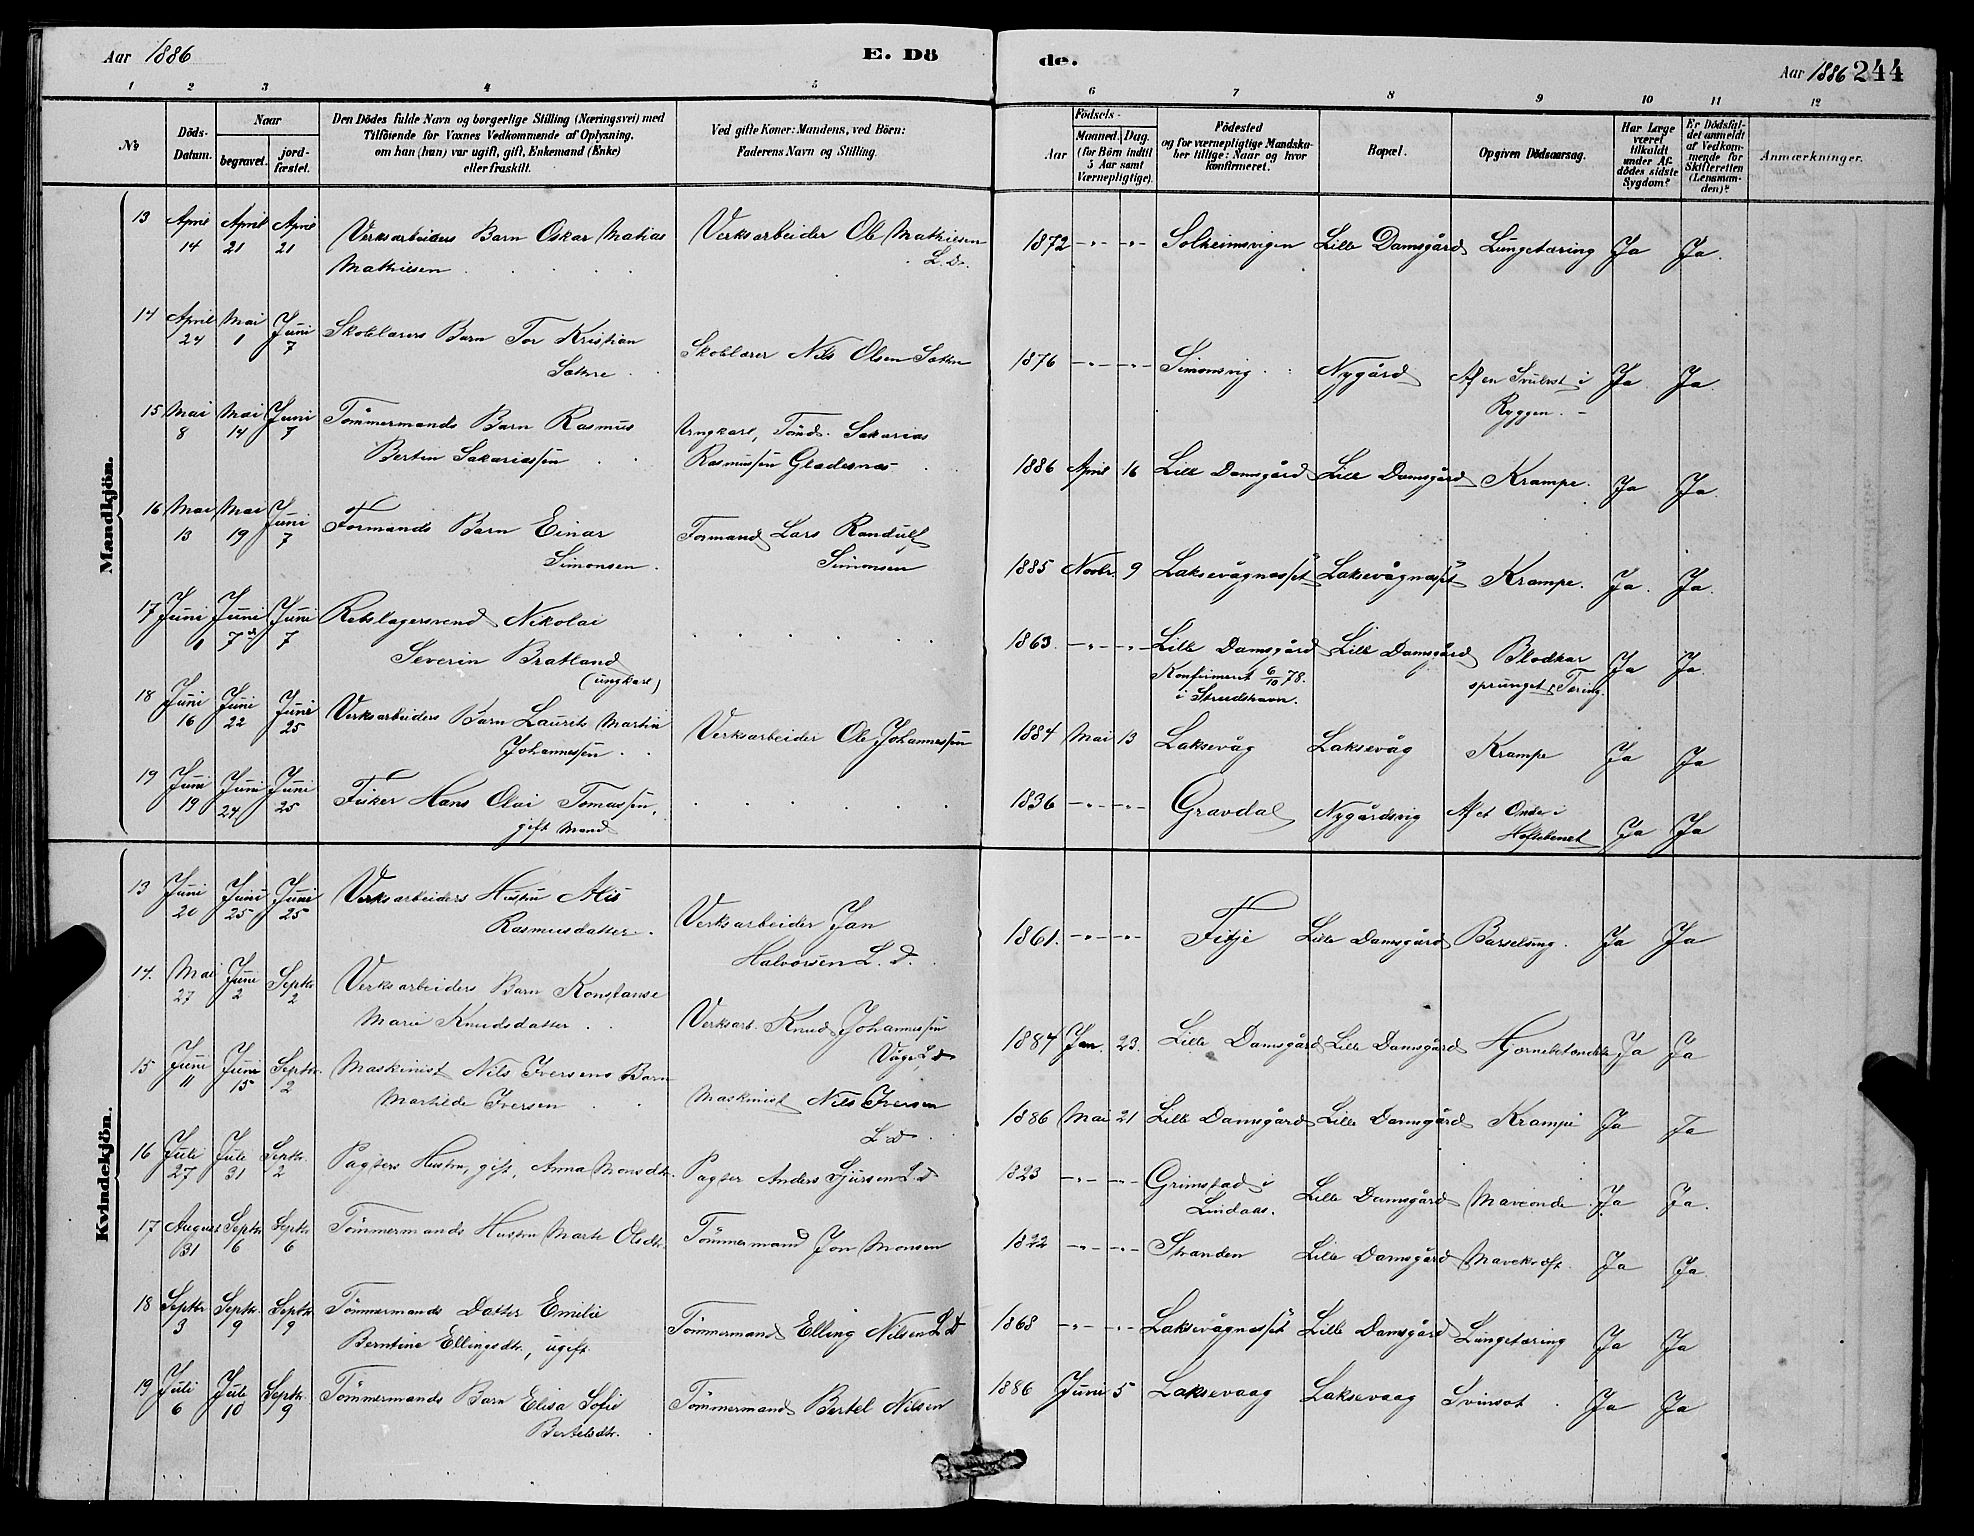 Aar 1886
E. Dö
de.
Aar 1886 244
1 2 3 4 5 6 7 8 9 10 11 12
No
Döds-
Datum.
Naar
begravet.
jord-
fæstet.
Den Dödes fulde Navn og borgerlige Stilling (Næringsvei) med
Tilföiende for Voxnes Vedkommende af Oplysning,
om han (hun) var ugift, gift, Enkemand (Enke)
eller fraskilt.
Ved gifte Koner: Mandens, ved Börn:
Faderens Navn og Stilling.
Födsels-
Aar
Maaned. Dag.
(for Börn indtil
5 Aar samt
Værnepligtige).
Födested
og for værnepligtige Mandska-
ber tillige: Naar og hvor
konfirmeret.
Bopæl.
Opgiven Dödsaarsag.
Har Læge
været
tilkaldt
under Af-
dödes sidste
Sygdom?
Er Dödsfal-
det anmeldt
af Vedkom-
mende for
Skifteretten
(Lensman-
den)?
Anmærkninger.
Mandkjön.
13 April 14 April 21 April 21 Verksarbeiders Barn Oskar Matias
Mathiesen
Verksarbeider Ole Mathiesen
L. D.
1872 -"- -"- Solheimsvigen Lille Damsgård Lungetæring Ja Ja.
14 April 24 Mai 1 Juni 7 Skolelærers Barn Tor Kristian
Sætre
Skolelærer Nils Olsen Sætre
1876 -"- -"- Simonsvig Nygård Af en Svulst i
Ryggen. Ja Ja.
15 Mai 8 Mai 14 Juni 7 Tömmermands Barn Rasmus
Bertin Sakariassen
Ungkarl, Tömd. Sakarias
Rasmussen Gladesnæs
1886 April 16 Lille Damsgård Lille Damsgård Krampe. Ja Ja.
16 Mai 13 Mai 19 Juni 7 Formands Barn Einar
Simonsen.
Formand Lars Randulf
Simonsen
1885 Novbr. 9 Laksevågnæsset Laksevågnæsset Krampe. Ja. Ja.
17 Juni 1 Juni 7 Juni 7 Rebslagersvend Nikolai
Severin Bratland
(ungkarl)
1863. -"- -"- Lille Damsgård Lille Damsgård Blodkar
Konfirmeret 6/10 78. sprunget, Tæring.
i Strudshavn. Ja Ja.
18 Juni 16 Juni 22 Juni 25 Verksarbeiders Barn Laurits Martin
Johannessen
Verksarbeider Ole Johannessen
1884 Mai 13 Laksevåg Laksevåg Krampe Ja Ja
19 Juni 19 Juni 24 Juni 25 Fisker Hans Olai Tomassen,
gift Mand
1836 -"- -"- Gravdal Nygårdsvig Af et Onde i
Hoftebenet Ja Ja
Kvindekjön.
13 Juni 20 Juni 25 Juni 25 Verksarbeiders Hustru Alis
Rasmusdatter.
Verksarbeider Jan
Halvorsen L. D.
1861. -"- -"- Fitje Lille Damsgård Barselseng. Ja Ja
14. Mai 27 Juni 2 Septbr. 2 Verksarbeiders Barn Konstanse
Marie Knudsdatter
Verksarb. Knud Johannessen
Våge, L. D
1884 Jan. 23. Lille Damsgård Lille Damsgård Hjernebetændelse Ja Ja
15 Juni 11 Juni 15 Septbr. 2 Maskinist Nils Iversens Barn
Matilde Iversen
Maskinist Nils Iversen
L. D
1886 Mai 21 Lille Damsgård Lille Damsgård Krampe Ja Ja
16 Juli 27 Juli 31 Septbr. 2 Pagters Hustru, gift, Anna Monsdtr.
Pagter Anders Sjursen L. D
1823 -"- -"- Grimstad i
Lindaas. Lille Damsgård Maveonde. Ja Ja.
17 August 31 Septbr 6 Septbr 6 Tömmermands Hustru Marte Olsdtr.
Tömmermand Jon Monsen
1822 -"- -"- Stranden Lille Damsgård Mavekræft. Ja Ja.
18 Septbr 3 Septbr. 9 Septbr. 9 Tömmermands Datter Emilie
Berntine Ellingsdtr., ugift.
Tömmermand Elling Nilsen L. D
1868 -"- -"- Laksevågnæsset Lille Damsgård Lungetæring Ja Ja
19 Juli 6 Juli 10 Septbr. 9 Tömmermands Barn Elisa Sofie
Bertelsdtr.
Tömmermand Bertel Nilsen
1886 Juni 5 Laksevaag Laksevaag Svinsot Ja Ja